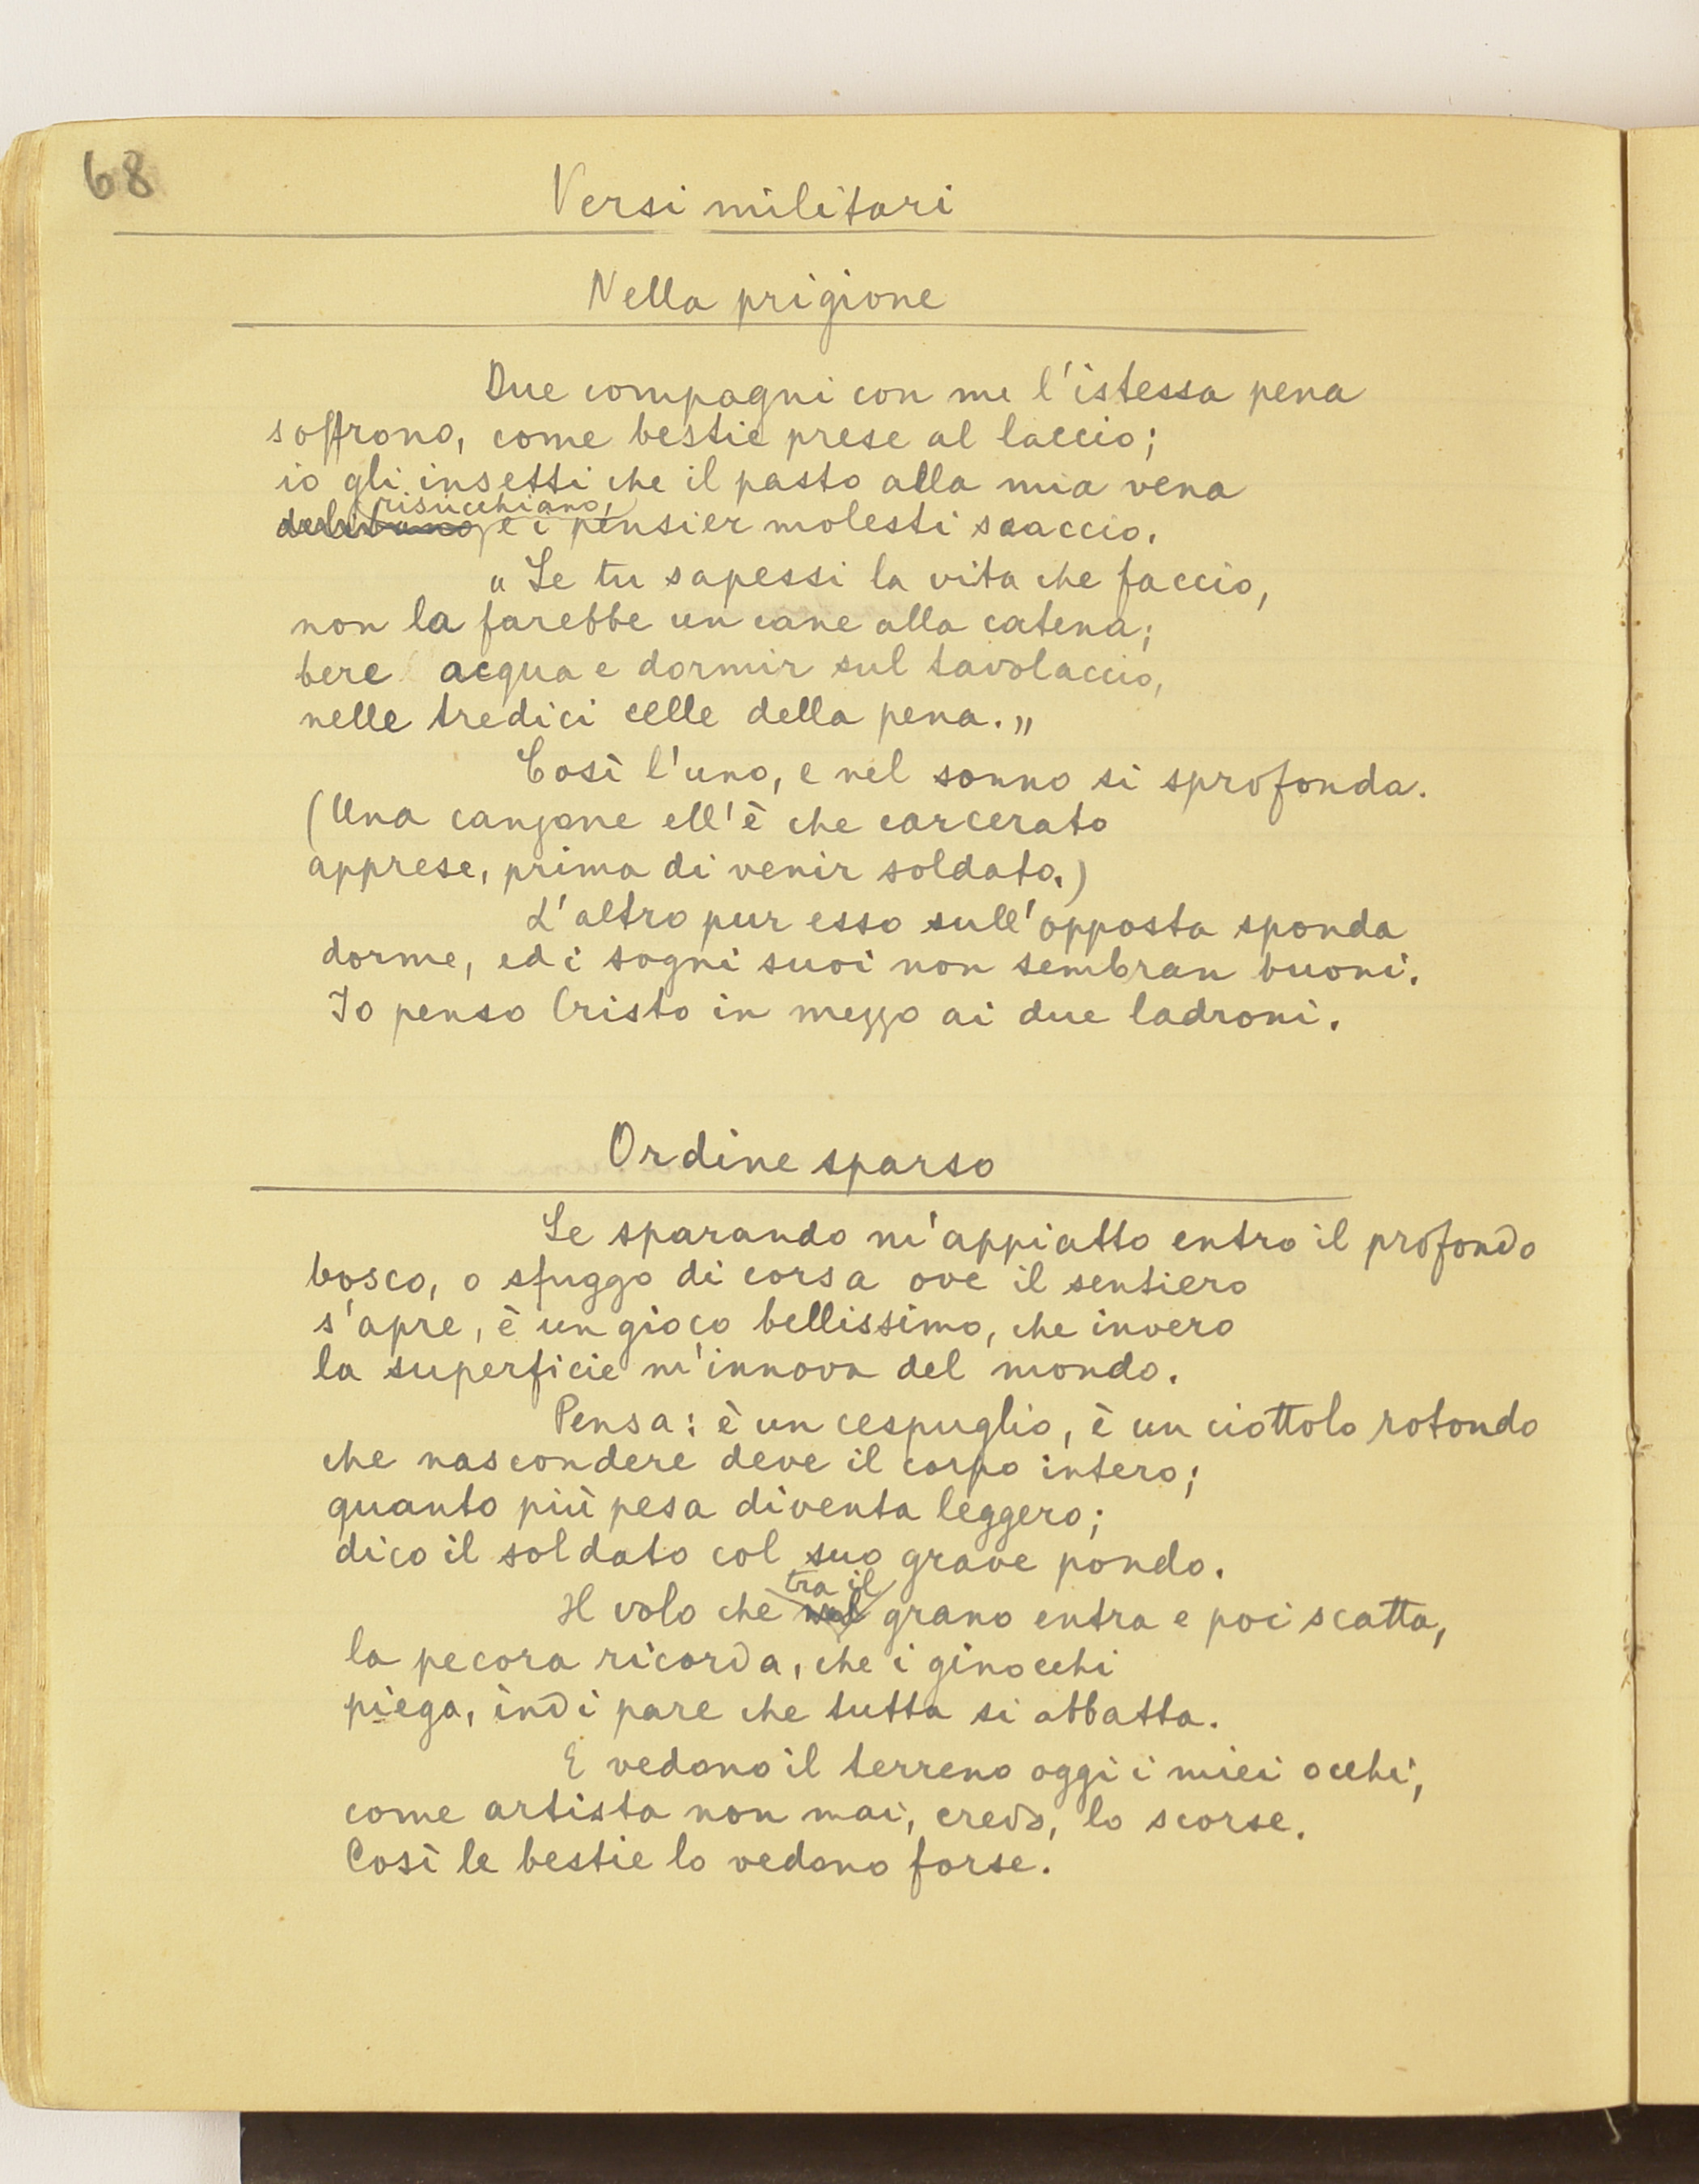 68
Versi militari
Nella prigione
Due compagni con me l'istessa pena
soffrono, come bestie prese al laccio;
io gli insetti che il pasto alla mia vena
risucchiano,
e i pensier molesti scaccio.
„ Se tu sapessi la vita che faccio,
non la farebbe un cane alla catena;
bere acqua e dormir sul tavolaccio,
nelle tredici celle della pena.„
Così l'uno, e nel sonno si sprofonda.
(Una canzone ell'è che carcerato
apprese, prima di venir soldato.)
L'altro pur esso sull'opposta sponda
dorme, ed i sogni suoi non sembran buoni.
Io penso Cristo in mezzo ai due ladroni.
Ordine sparso
Se sparando m'appiatto entro il profondo
bosco, o sfuggo di corsa ove il sentiero
s'apre, è un gioco bellissimo, che invero
la superficie m'innova del mondo.
Pensa: è un cespuglio, è un ciottolo rotondo
che nascondere deve il corpo intero;
quanto più pesa diventa leggero;
dico il soldato col suo grave pondo.
tra il
Il volo che nel grano entra e poi scatta,
la pecora ricorda, che i ginocchi
piega, indi pare che tutta si abbatta.
E vedono il terreno oggi i miei occhi,
come artista non mai, credo, lo scorse.
Così le bestie lo vedono forse.